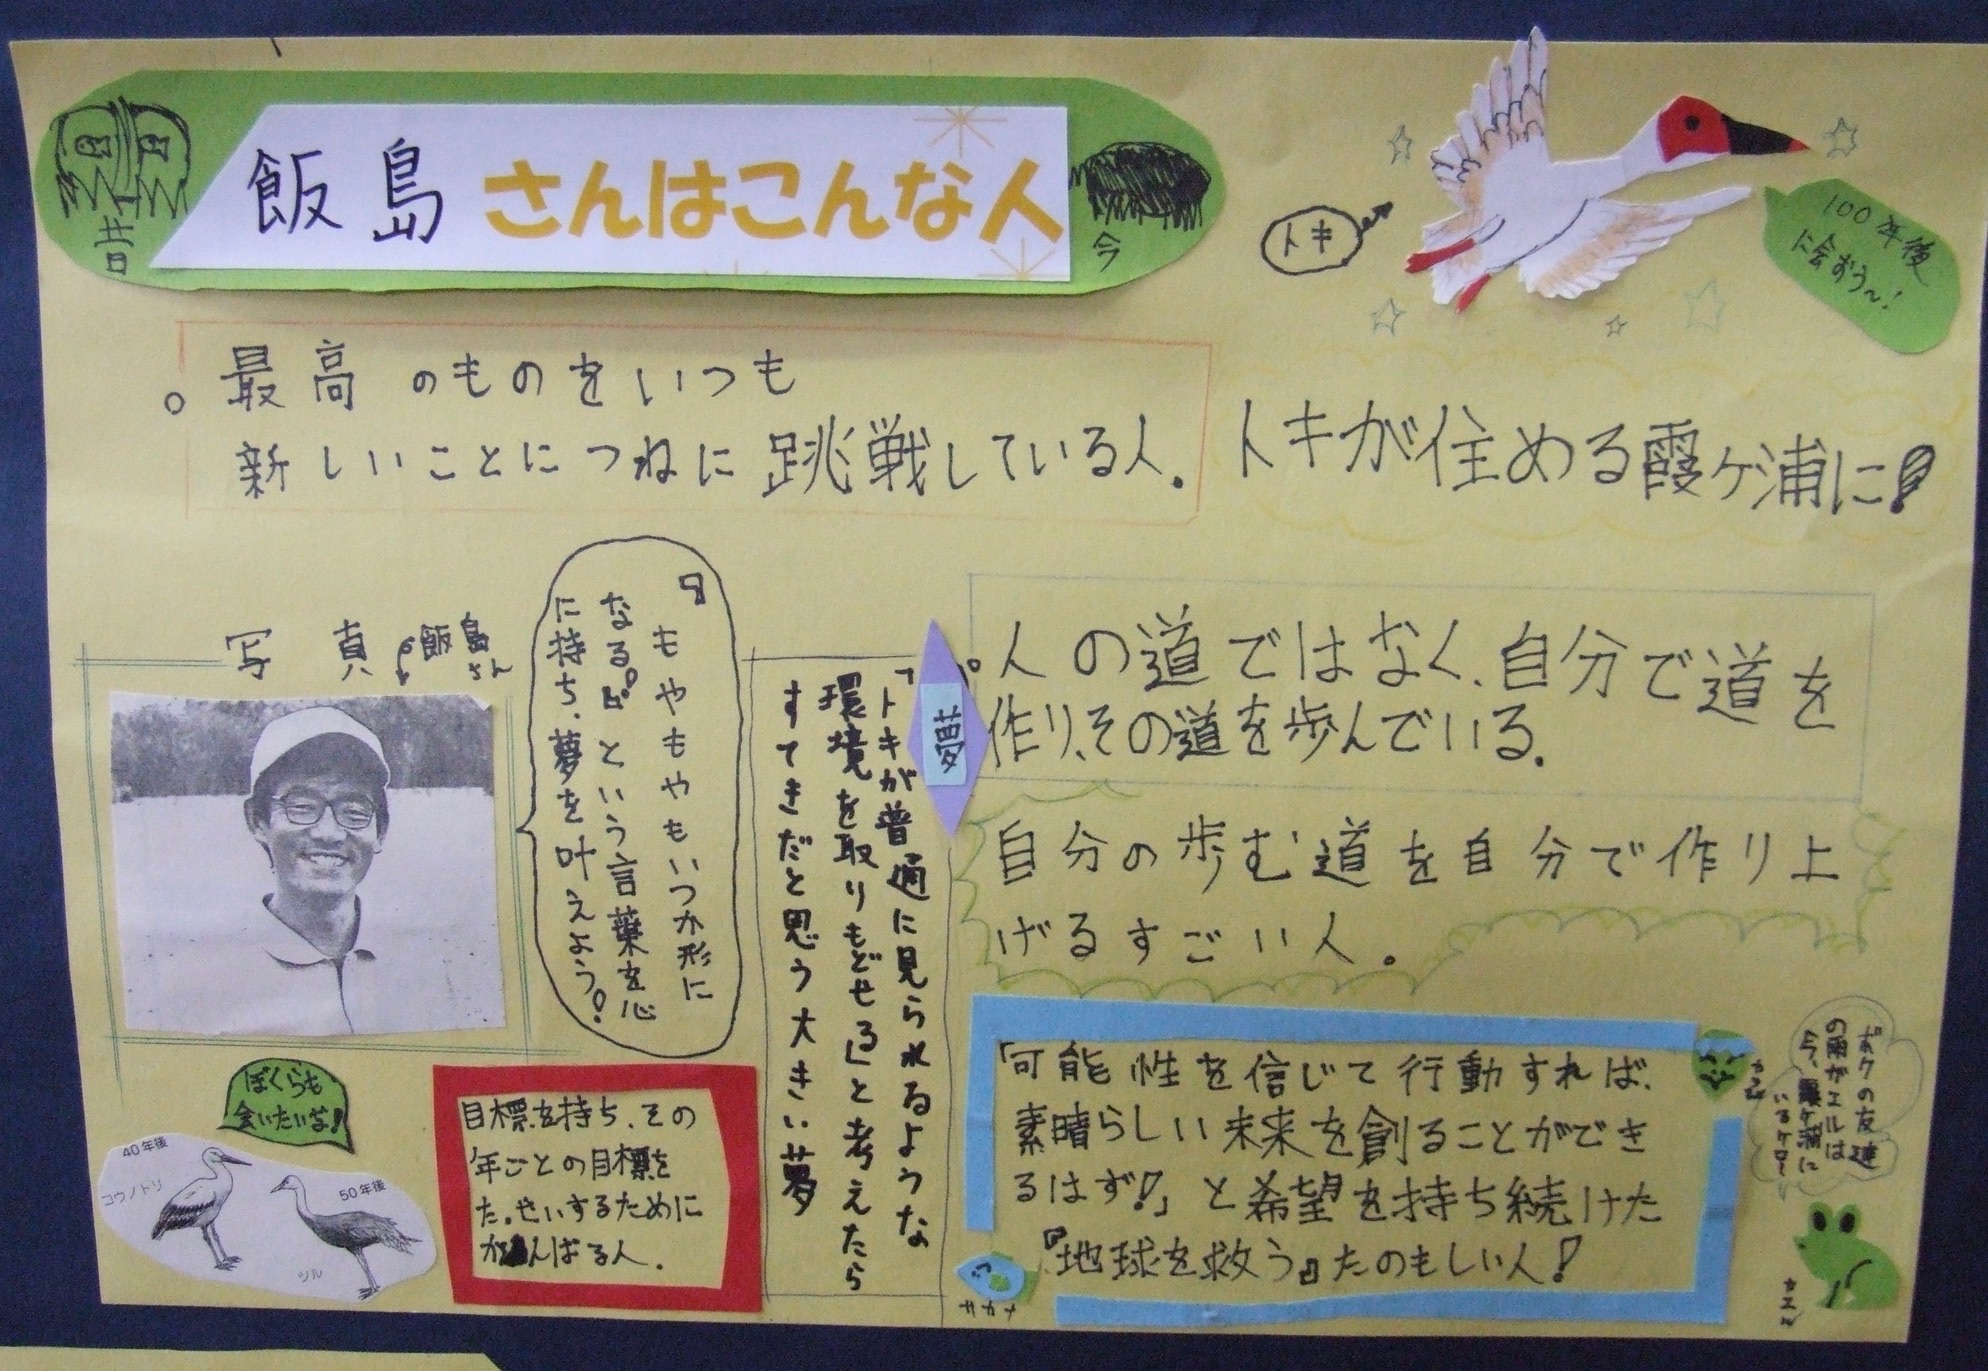 飯島さんはこんな人
昔
今
トキ
100年後
に会おう〜!
。最高のものをいつも
新しいことにつねに跳戦している人.
トキが住める霞ヶ浦に!
写真
飯島
さん
『もやもやもいつか形に
なる。』という言葉を心
に持ち、夢を叶えよう!
夢
「トキが普通に見られるような
環境を取りもどせる」と考えたら
すてきだと思う大きい夢
。人の道ではなく、自分で道を
作り、その道を歩んでいる.
自分の歩む道を自分で作り上
げるすごい人.
ぼくらも
会いたいな!
40年後
コウノトリ
50年後
ツル
目標を持ち、その
年ごとの目標を
たっせいするために
がんばる人.
「可能性を信じて行動すれば、
素晴らしい未来を創ることができ
るはず!」と希望を持ち続けた
『地球を救う』たのもしい人!
サカナ
ボクの友達
の雨ガエルは
今、霞ヶ浦に
いるケロ〜
カエル